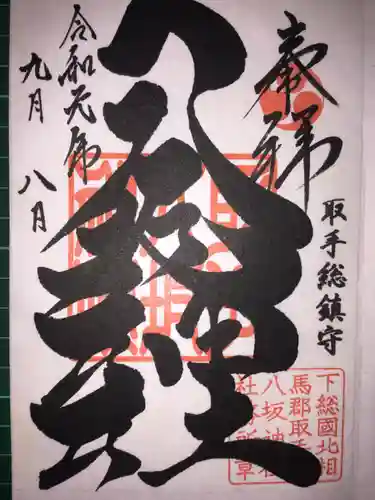 奉拝
取手総鎮守
八坂神社
令和元年
九月八月
下総國北相
馬郡取手
八坂神社
社務所章